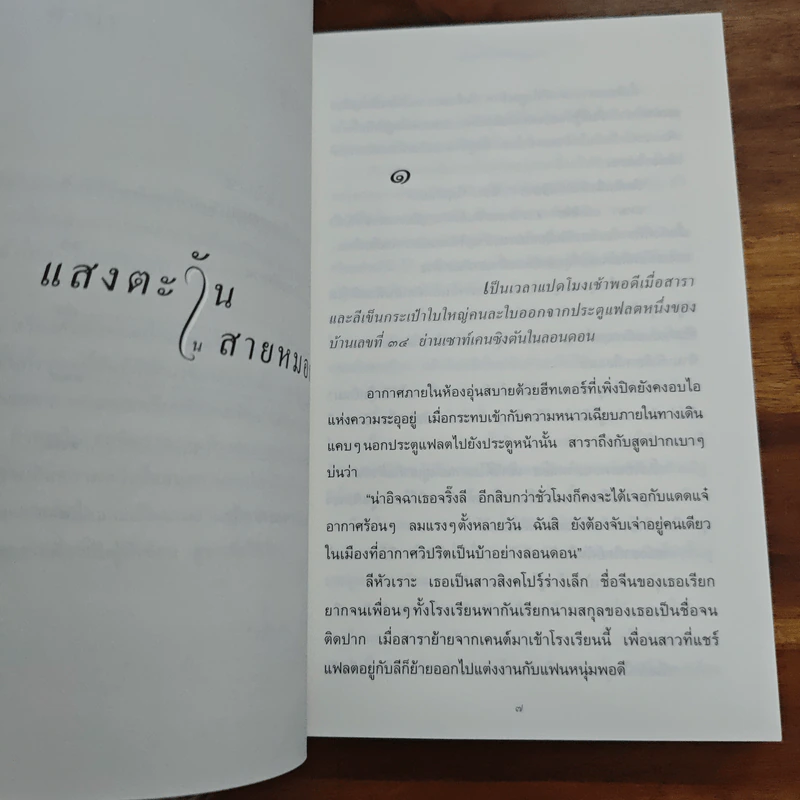 แสงตะวัน
ใน
สายหมอก
๑
เป็นเวลาแปดโมงเช้าพอดีเมื่อสารา
และลีเข็นกระเป๋าใบใหญ่คนละใบออกจากประตูแฟลตหนึ่งของ
บ้านเลขที่ ๓๔ ย่านเซาท์เคนซิงตันในลอนดอน
อากาศภายในห้องอุ่นสบายด้วยฮีทเตอร์ที่เพิ่งปิดยังคงอบไอ
แห่งความระอุอยู่ เมื่อกระทบเข้ากับความหนาวเฉียบภายในทางเดิน
แคบๆนอกประตูแฟลตไปยังประตูหน้านั้น สาราถึงกับสูดปากเบาๆ
บ่นว่า
“น่าอิจฉาเธอจริ๊งลี อีกสิบกว่าชั่วโมงก็คงจะได้เจอกับแดดแจ๋
อากาศร้อนๆ ลมแรงๆตั้งหลายวัน ฉันสิ ยังต้องจับเจ่าอยู่คนเดียว
ในเมืองที่อากาศวิปริตเป็นบ้าอย่างลอนดอน”
ลีหัวเราะ เธอเป็นสาวสิงคโปร์ร่างเล็ก ชื่อจีนของเธอเรียก
ยากจนเพื่อนๆทั้งโรงเรียนพากันเรียกนามสกุลของเธอเป็นชื่อจน
ติดปาก เมื่อสาราย้ายจากเคนต์มาเข้าโรงเรียนนี้ เพื่อนสาวที่แชร์
แฟลตอยู่กับลีก็ย้ายออกไปแต่งงานกับแฟนหนุ่มพอดี
๗